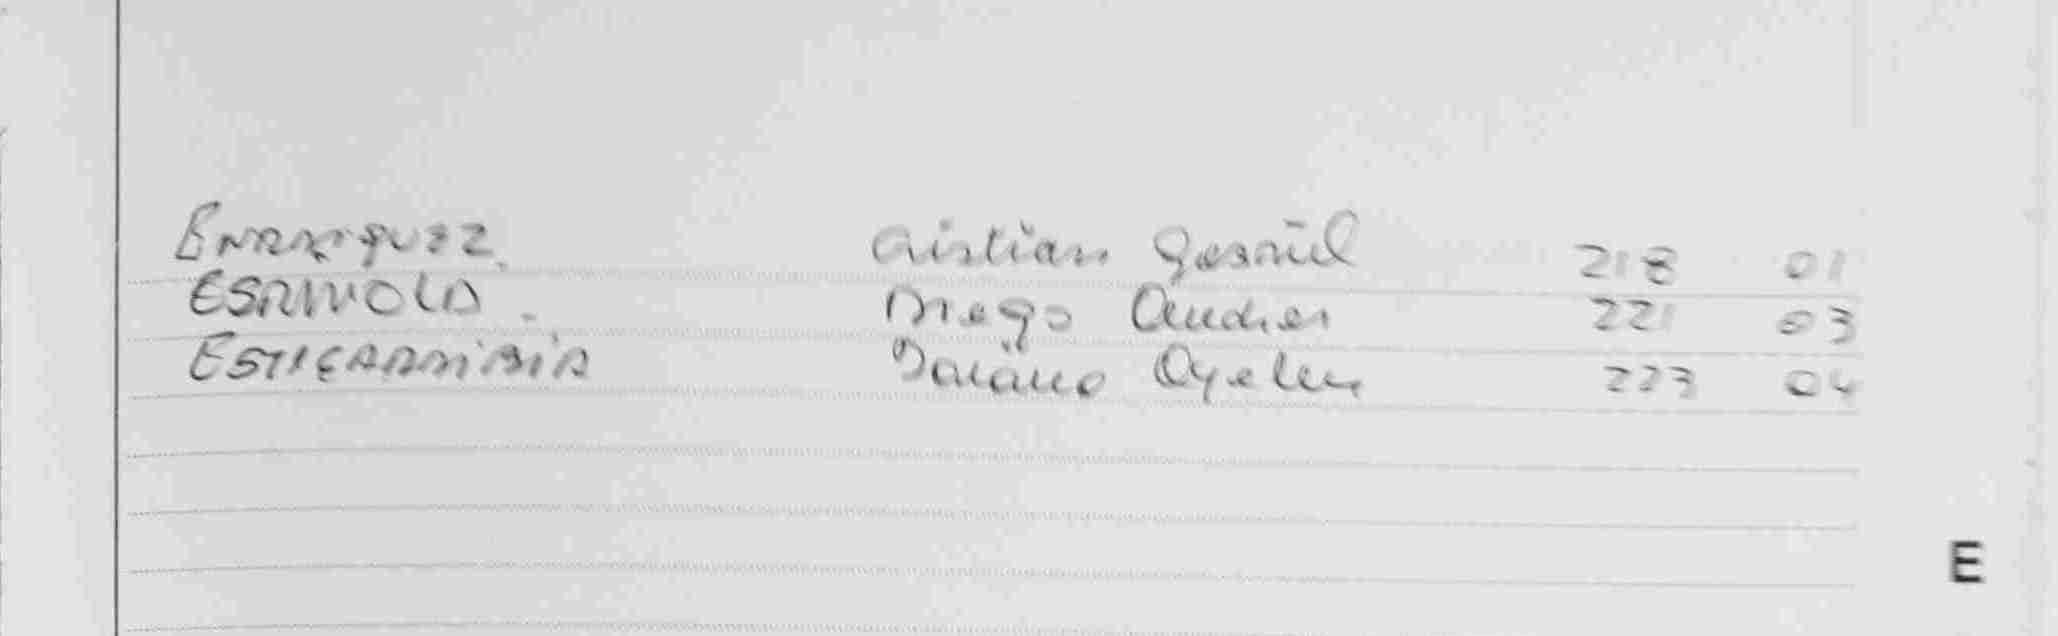 Enrriquez Cristian Gabriel 218 01
ESPINOLA Diego Andres 221 03
ESTIGARRIBIA 223 04
E